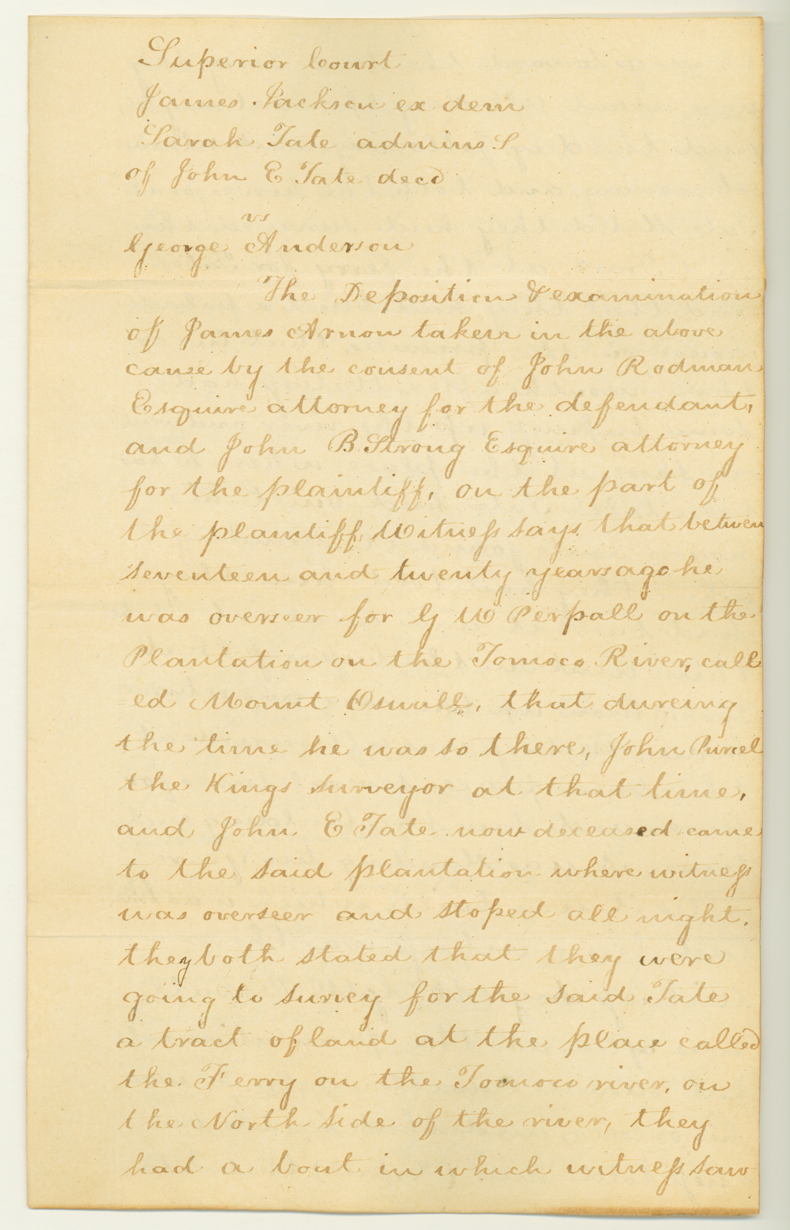 Superior Court
James Jackson ex dem
Sarah Tate admins S
of John E Tate decd
vs
George Anderson
The Deposition & examination
of James Arnow taken in the above
cause by the consent of John Rodman
Esquire attorney for the defendant,
and John B Strong Esquire attorney
for the plaintiff, on the part of
the plaintiff, Witness says that between
seventeen and twenty years ago he
was overseer for G W Perpall on the
Plantation on the Tomoco River, call
ed Mount Oswall, that dureing
the time he was so there, John Purcel
the Kings surveyor at that time,
and John E Tate now deceased came
to the said plantation where witness
was overseer and stoped all night.
they both stated that they were
going to survey for the said Tate
a tract of land at the place called
the Ferry on the Tomoco river, on
the North side of the river, they
had a boat in which witness saw